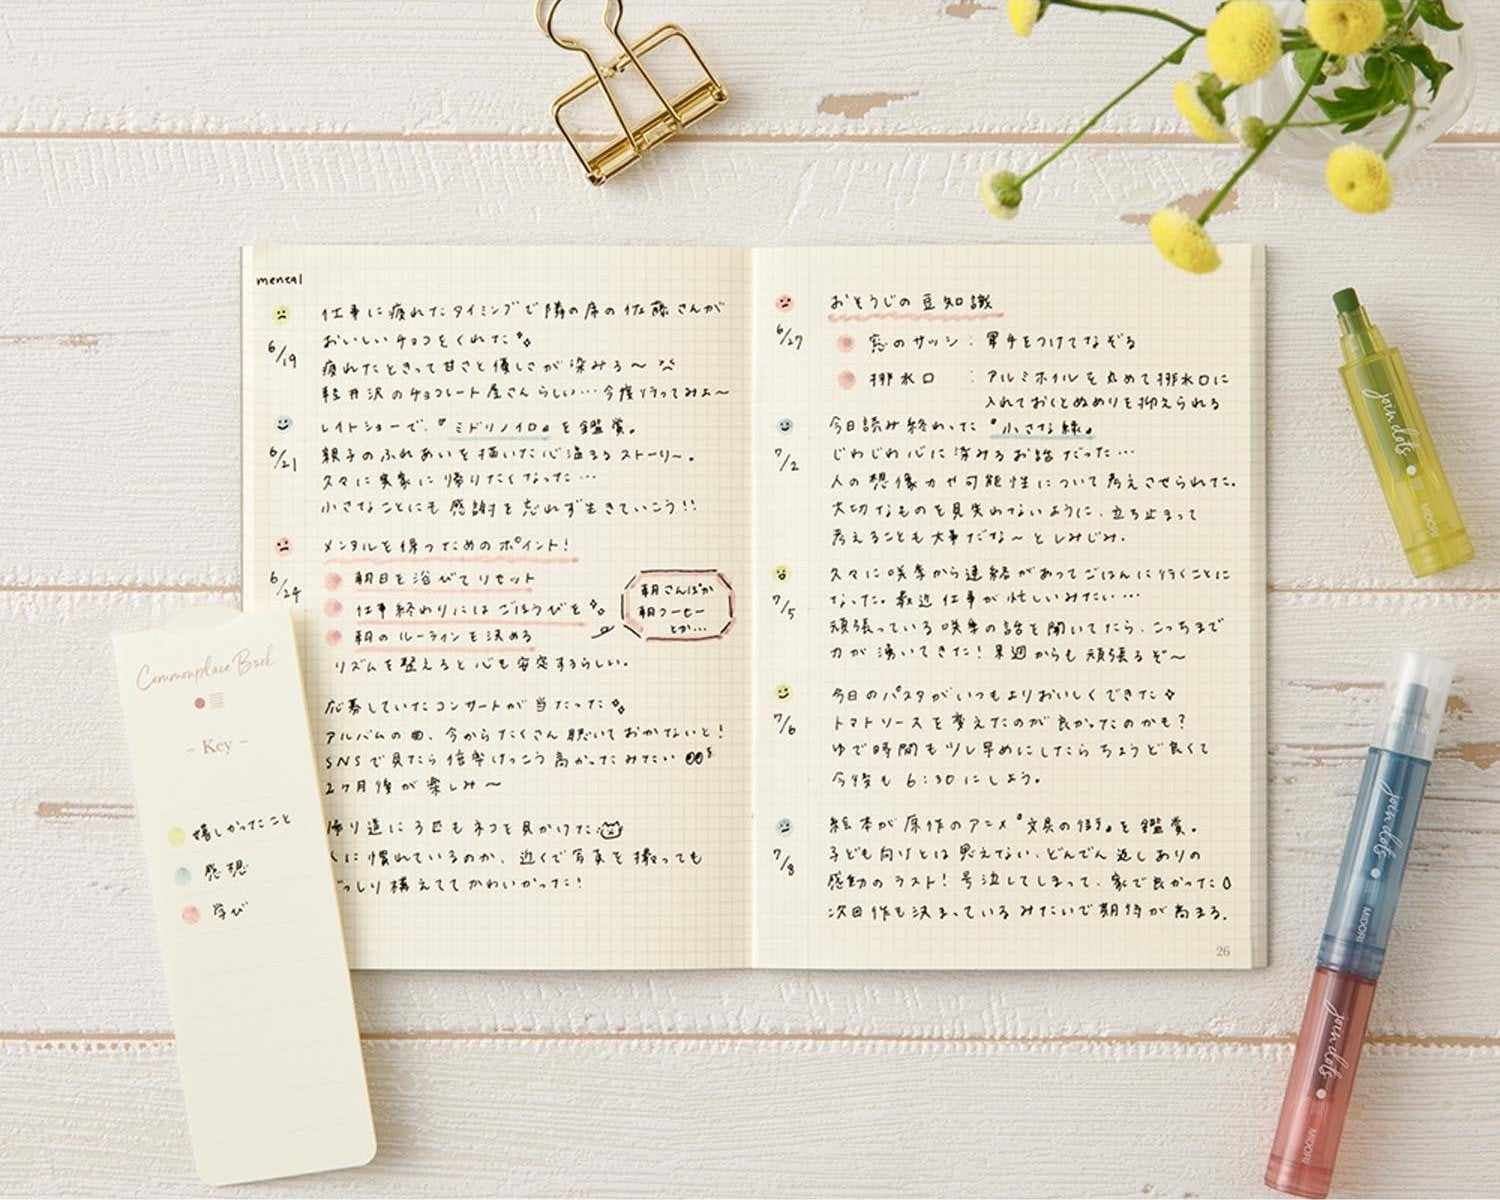 mental
6/19
仕事に疲れたタイミングで隣の席の佐藤さんが
おいしいチョコをくれた
疲れたときって甘さと優しさが染みる〜
軽井沢のチョコレート屋さんらしい…今度行ってみよ〜
6/21
レイトショーで、『ミドリノイロ』を鑑賞。
親子のふれあいを描いた心温まるストーリー。
久々に実家に帰りたくなった…
小さなことにも感謝を忘れず生きていこう!!
6/24
メンタルを保つためのポイント!
朝日を浴びてリセット
仕事終わりにはごほうびを
朝のルーティンを決める
朝さんぽか
朝コーヒー
とか…
リズムを整えると心も安定するらしい。
応募していたコンサートが当たった
アルバムの曲、今からたくさん聴いておかないと!
SNSで見たら倍率けっこう高かったみたい
2ヶ月後が楽しみ〜
帰り道に3匹もネコを見かけた
に慣れているのか、近くで写真を撮っても
っしり構えててかわいかった!
6/27
おそうじの豆知識
窓のサッシ：軍手をつけてなぞる
排水口：アルミホイルを丸めて排水口に
入れておくとぬめりを抑えられる
7/2
今日読み終わった『小さな緑』
じわじわ心に染みるお話だった…
人の想像力や可能性について考えさせられた。
大切なものを見失わないように、立ち止まって
考えることも大事だな〜としみじみ。
7/5
久々に咲季から連絡があってごはんに行くことに
なった。最近仕事が忙しいみたい…
頑張っている咲季の話を聞いてたら、こっちまで
力が湧いてきた!来週からも頑張るぞ〜
7/6
今日のパスタがいつもよりおいしくできた
トマトソースを変えたのが良かったのかも?
ゆで時間も少し早めにしたらちょうど良くて
今後も6:30にしよう。
7/8
絵本が原作のアニメ『文具の街』を鑑賞。
子ども向けとは思えない、どんでん返しありの
感動のラスト!号泣してしまって、家で良かった
次回作も決まっているみたいで期待が高まる。
26
Commonplace Book
- Key -
嬉しかったこと
感想
学び
join dots
MIDORI
join dots
MIDORI
join dots
MIDORI